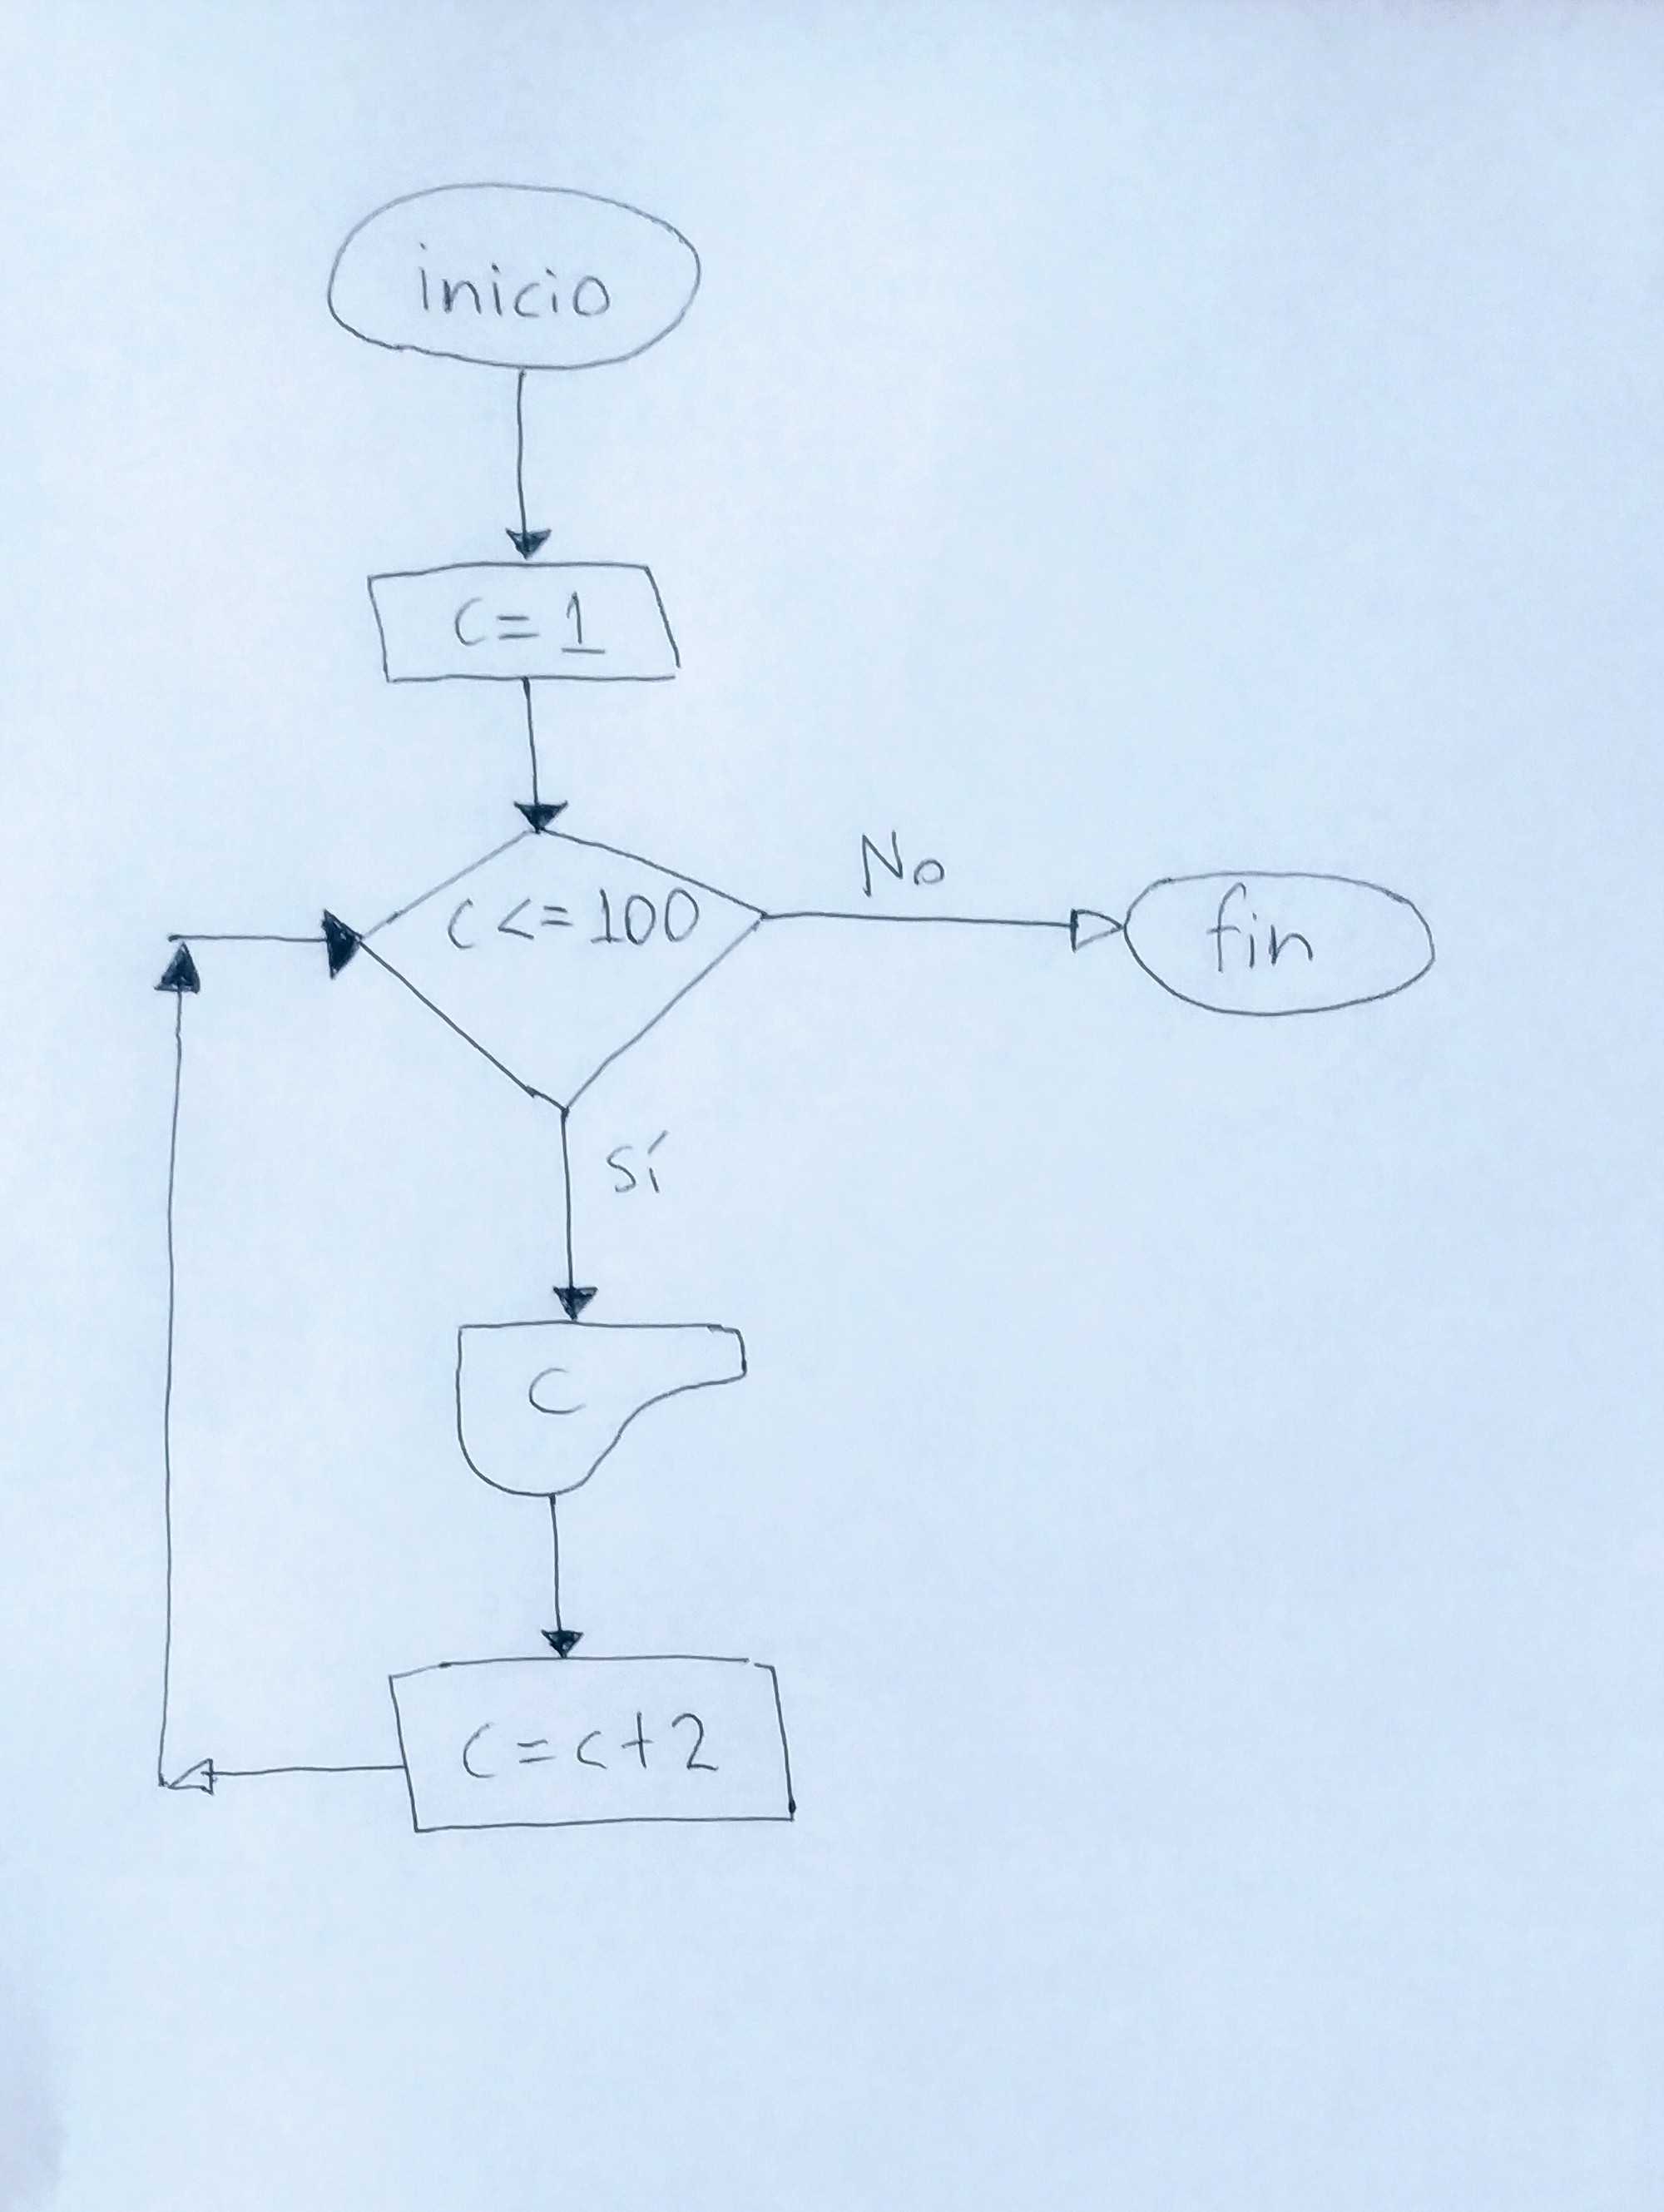 inicio
C = 1
C <= 100
No
fin
sí
C
C = c + 2